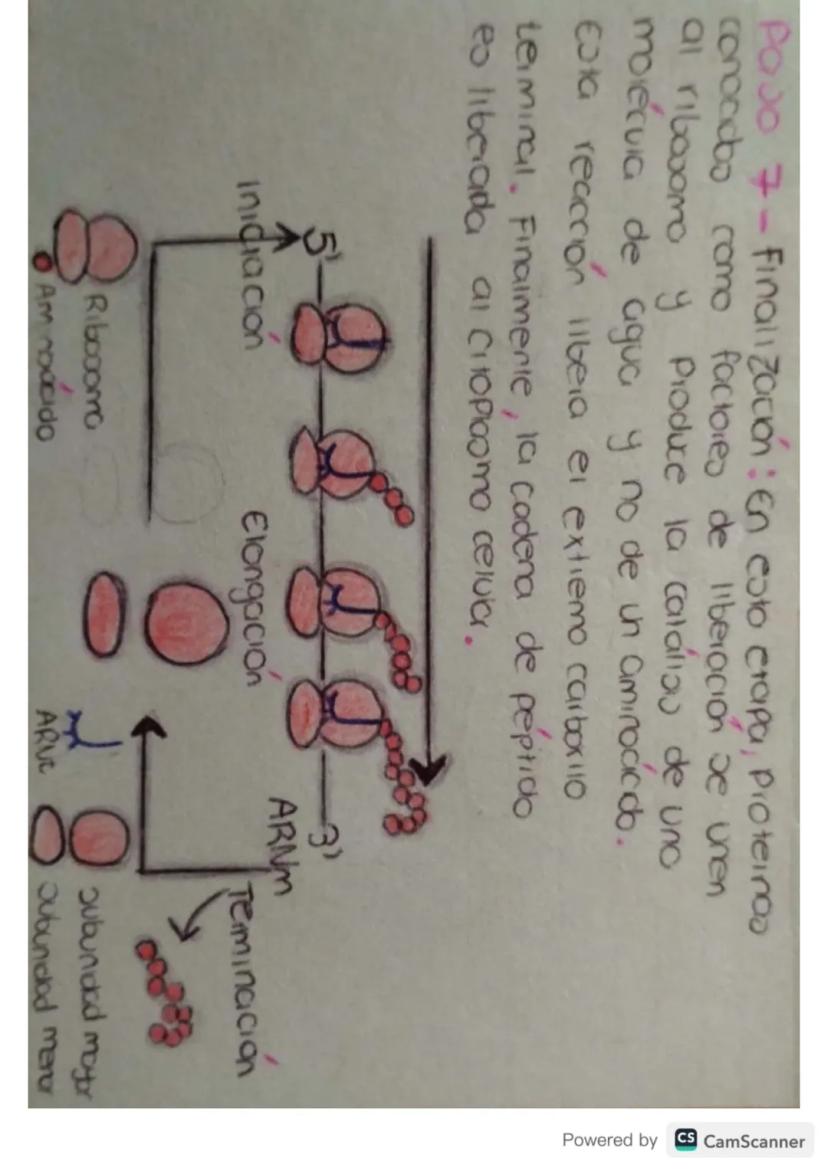 Paso 7- Finalización: En esta etapa, proteinas
conocidas como factores de liberación se unen
al ribosoma y produce la catálisis de una
molécula de agua y no de un aminoácido.
Esta reacción libera el extremo carboxilo
terminal. Finalmente, la cadena de péptido
es liberada al citoplasma celular.
5'
3'
ARNm
Inidiación
Elongación
Terminación
Ribosoma
Aminoácido
ARNt
subunidad mayor
subunidad menor
Powered by CS CamScanner